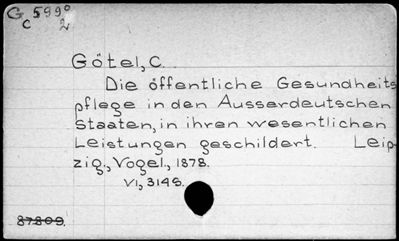 G 599⁰
c 2
Götel, C.
Die öffentliche Gesundheits
pflege in den Ausserdeutschen
Staaten, in ihren wesentlichen
Leistungen geschildert. Leip-
zig., Vogel., 1878.
VI, 314S.
87809.